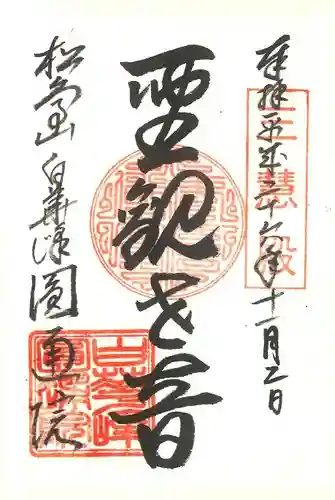 奉拝 平成二十六年十一月二日
三慧殿
聖観世音
松島山 白華峰 圓通院
白華峰